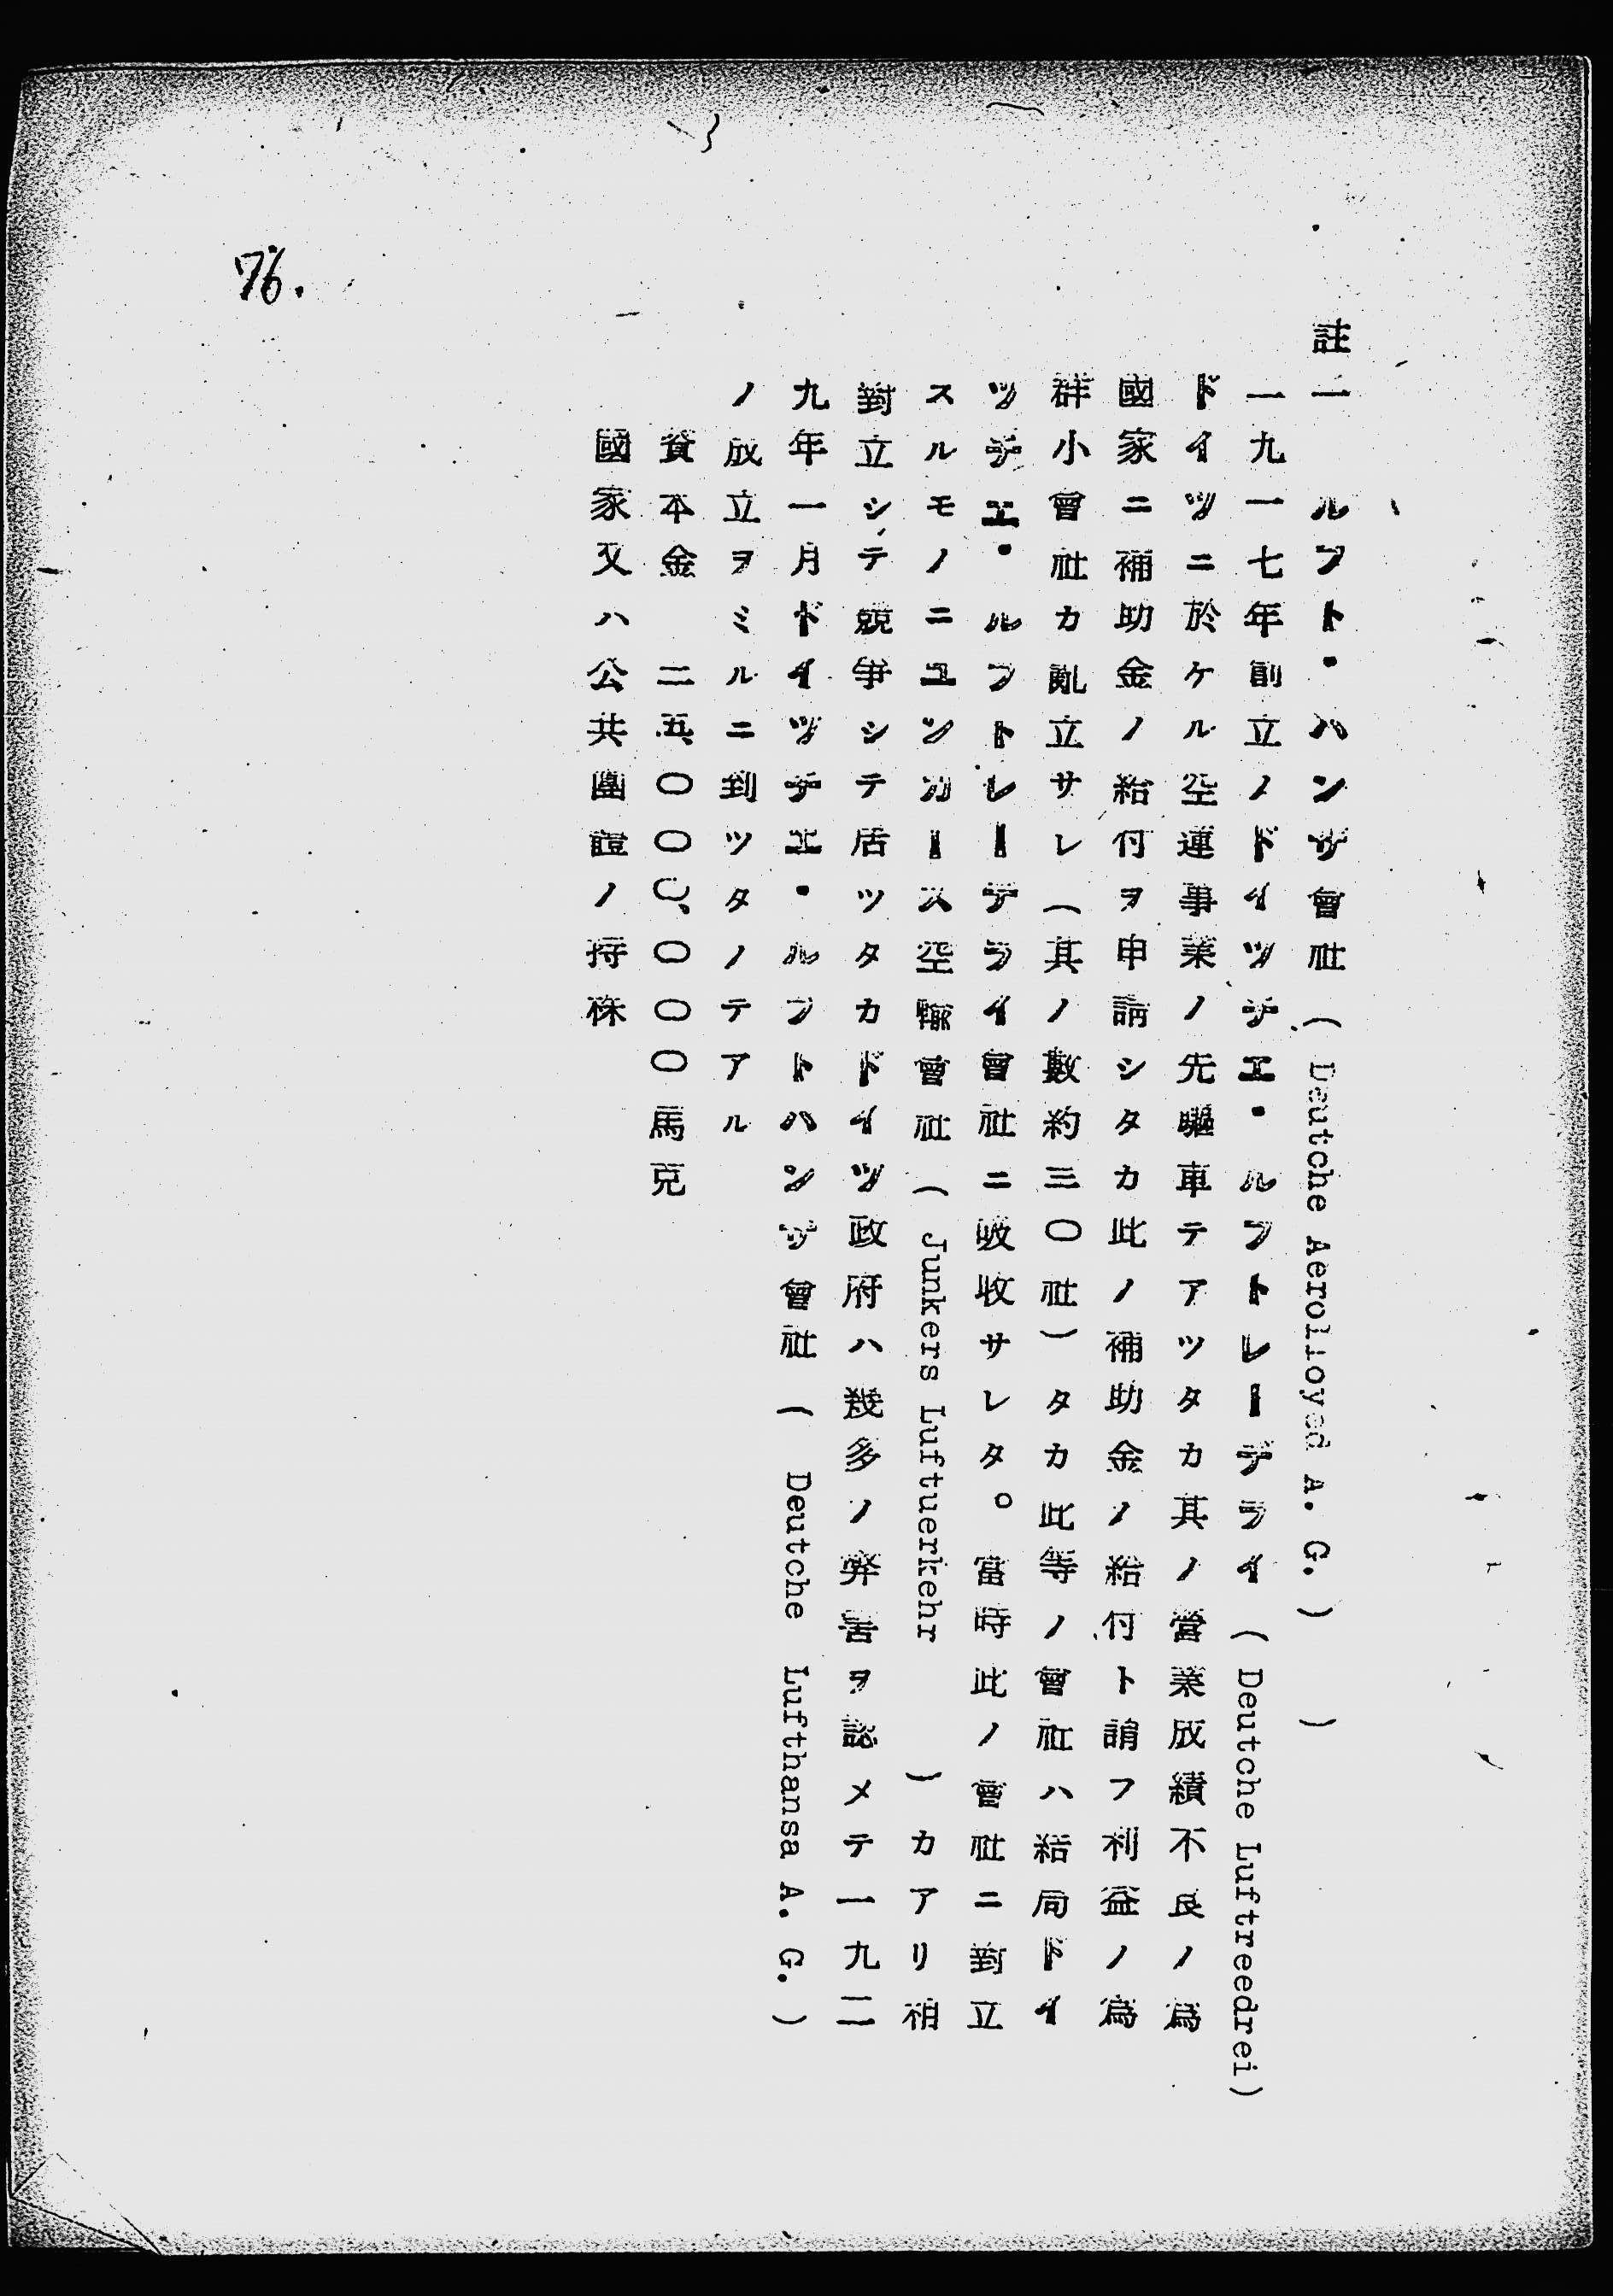 註一　ルフト・ハンザ會社（Deutche Aerolloyed A. G.）　）
一九一七年創立ノドイツチエ・ルフトレーデライ（Deutche Luftreedrei）
ドイツニ於ケル空運事業ノ先驅車テアツタカ其ノ營業成績不良ノ爲
國家ニ補助金ノ給付ヲ申請シタカ此ノ補助金ノ給付ト謂フ利益ノ爲
群小會社カ亂立サレ（其ノ數約三〇社）タカ此等ノ會社ハ結局ドイ
ツチエ・ルフトレーデライ會社ニ吸收サレタ。當時此ノ會社ニ對立
スルモノニユンカース空輸會社（Junkers Luftuerkehr　）カアリ相
對立シテ競爭シテ居ツタカドイツ政府ハ幾多ノ弊害ヲ認メテ一九二
九年一月ドイツチエ・ルフトハンザ會社（Deutche Lufthansa A. G.）
ノ成立ヲミルニ到ツタノテアル
資本金　二五、〇〇〇、〇〇〇馬克
國家又ハ公共團體ノ持株
76.